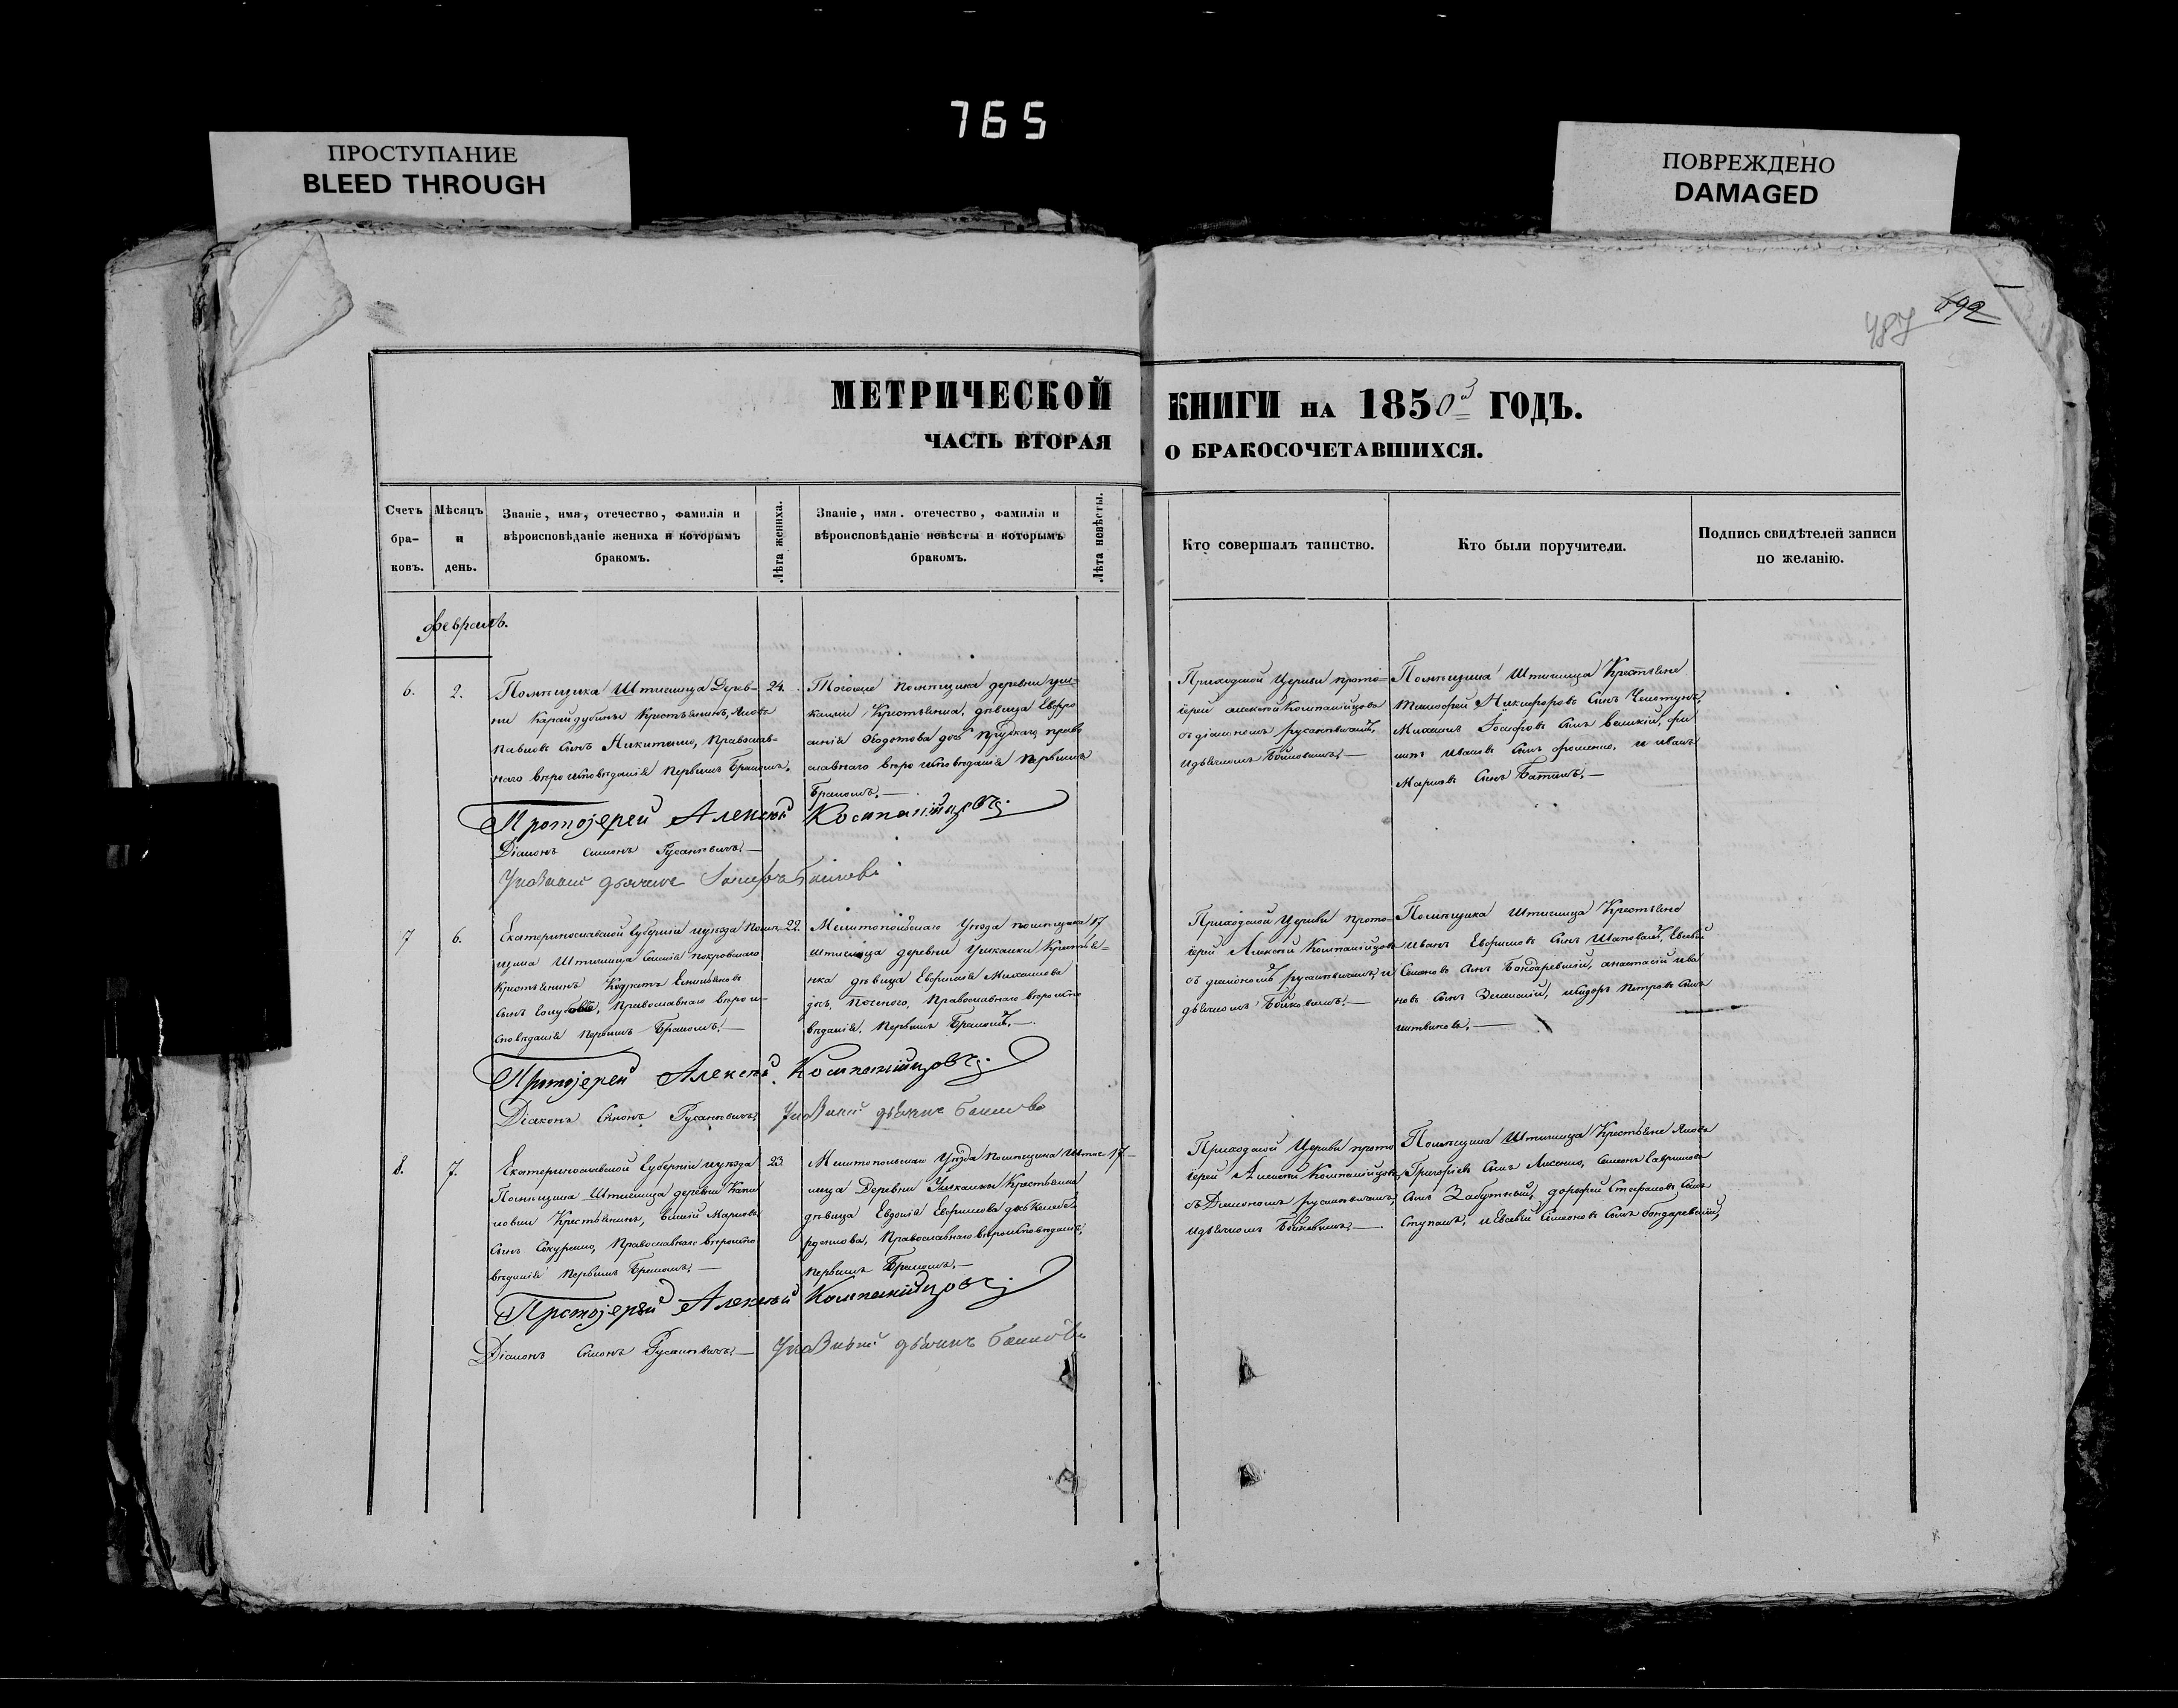 765
ПРОСТУПАНИЕ
BLEED THROUGH
ПОВРЕЖДЕНО
DAMAGED
487
МЕТРИЧЕСКОЙ КНИГИ НА 1850й ГОДЪ.
ЧАСТЬ ВТОРАЯ О БРАКОСОЧЕТАВШИХСЯ.
Счетъ
бра-
ковъ.
Мѣсяцъ
и
день.
Званіе, имя, отечество, фамилія и
вѣроисповѣданіе жениха и которымъ
бракомъ.
Лѣта жениха.
Званіе, имя. отечество, фамилія и
вѣроисповѣданіе невѣсты и которымъ
бракомъ.
Лѣта невѣсты.
Кто совершалъ таинство.
Кто были поручители.
Подпись свидѣтелей записи
по желанію.
Февраль.
6.
2.
Помѣщика Штиглица Дерев-
ни Карайдубины Крестьянинъ, Яковъ
Павловъ сынъ Никитенко, Православ-
наго вѣроисповѣданія первымъ бракомъ.
24.
Тогоже помѣщика деревни
Крестьянка, дѣвица Евфро
синія Федотова дочь право
славнаго вѣроисповѣданія первымъ
бракомъ.
Приходской Церкви прото-
іерей Алексѣй Компанійцовъ
съ діакономъ Русаневичемъ,
и дьячкомъ Бойковымъ.
Помѣщика Штиглица Крестьяне
Тимофей Никифоровъ сынъ
Михаилъ Іосифовъ сынъ Великій,
Ивановъ сынъ и Иванъ
Марковъ сынъ
Протоіерей Алексѣй Компанійцовъ
Діаконъ Симонъ Русаневичъ.
Указный дьячекъ
7
6.
Екатеринославской Губерніи и уѣзда Помѣ-
щика Штиглица Селенія Покровскаго
Крестьянинъ Кодратъ
сынъ Православнаго вѣрои-
сповѣданія первымъ бракомъ.
22.
Мелитопольскаго Уѣзда помѣщика
Штиглица деревни Крестьян-
ка дѣвица Евфимія Михайлова
дочь, Православнаго вѣроиспо
вѣданія, первымъ бракомъ.
17
Приходской Церкви прото-
іерей Алексѣй Компанійцовъ
съ діакономъ Русаневичемъ, и
дьячкомъ Бойковымъ.
Помѣщика Штиглица Крестьяне
Иванъ Евфимовъ сынъ Шаповалъ, Евсевій
Семеновъ сынъ Бондаревскій, Анастасій Ива
новъ сынъ Зеленскій, Исидоръ Петровъ сынъ
Протоіерей Алексѣй Компанійцовъ
Діаконъ Симонъ Русаневичъ. Указный дьячекъ
8.
7.
Екатеринославской Губерніи и уѣзда
Помѣщика Штиглица деревни
Крестьянинъ, Марковъ
сынъ Сокуренко, Православнаго вѣроиспо
вѣданія первымъ бракомъ.
23.
Мелитопольскаго Уѣзда Помѣщика Штиг-
лица Деревни Крестьянка
дѣвица Евдокія Евфимова дочь
Православнаго вѣроисповѣданія,
первымъ бракомъ.
17
Приходской Церкви прото
іерей Алексѣй Компанійцовъ
съ Діакономъ Русаневичемъ,
и дьячкомъ Бойковымъ.
Помѣщика Штиглица Крестьяне Яковъ
Григорьевъ сынъ Лисенко, Семенъ Гавриловъ
сынъ Забутный, Дорофей Стефановъ сынъ
Ступакъ, и Евсевій Семеновъ сынъ Бондаревскій,
Протоіерей Алексѣй Компанійцовъ
Діаконъ Симонъ Русаневичъ. Указный дьячекъ